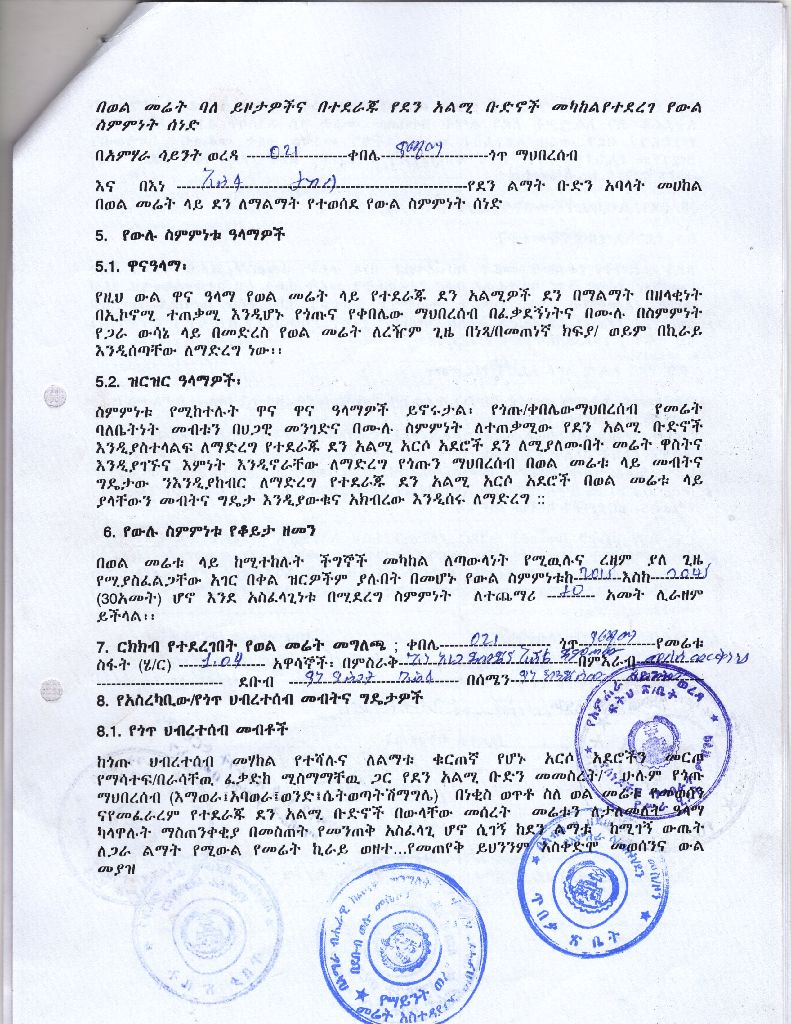 በወል መሬት ባለ ይዞታዎችና በተደራጁ የደን አልሚ ቡድኖች መካከልየተደረገ የውል
ስምምነት ሰነድ
በአምሃራ ሳይንት ወረዳ ----------021----------ቀበሌ--------------------ጎጥ ማህበረሰብ
እና በእነ ----------------------------------------የደን ልማት ቡድን አባላት መሀከል
በወል መሬት ላይ ደን ለማልማት የተወሰደ የውል ስምምነት ሰነድ
5. የውሉ ስምምነቱ ዓላማዎች
5.1. ዋናዓላማ፡
የዚህ ውል ዋና ዓላማ የወል መሬት ላይ የተደራጁ ደን አልሚዎች ደን በማልማት በዘላቂነት
በኢኮኖሚ ተጠቃሚ እንዲሆኑ የጎጡና የቀበሌው ማህበረሰብ በፈቃደኝነትና በሙሉ በስምምነት
የጋራ ውሳኔ ላይ በመድረስ የወል መሬት ለረዥም ጊዜ በነጻ/በመጠነኛ ክፍያ/ ወይም በኪራይ
እንዲሰጣቸው ለማድረግ ነው፡፡
5.2. ዝርዝር ዓላማዎች፡
ስምምነቱ የሚከተሉት ዋና ዋና ዓላማዎች ይኖሩታል፤ የጎጡ/ቀበሌውማህበረሰብ የመሬት
ባለቤትነት መብቱን በህጋዊ መንገድና በሙሉ ስምምነት ለተጠቃሚው የደን አልሚ ቡድኖች
እንዲያስተላልፍ ለማድረግ የተደራጁ ደን አልሚ አርሶ አደሮች ደን ለሚያለሙበት መሬት ዋስትና
እንዲያገኙና እምነት እንዲኖራቸው ለማድረግ የጎጡን ማህበረሰብ በወል መሬቱ ላይ መብትና
ግዴታው ንእንዲያከብር ለማድረግ የተደራጁ ደን አልሚ አርሶ አደሮች በወል መሬቱ ላይ
ያላቸውን መብትና ግዴታ እንዲያውቁና አክብረው እንዲሰሩ ለማድረግ ::
6. የውሉ ስምምነቱ የቆይታ ዘመን
በወል መሬቱ ላይ ከሚተከሉት ችግኞች መካከል ለጣውላነት የሚዉሉና ረዘም ያለ ጊዜ
የሚያስፈልጋቸው አገር በቀል ዝርዎችም ያሉበት በመሆኑ የውል ስምምነቱከ--2015--እስከ--2045
(30አመት) ሆኖ እንደ አስፈላጊነቱ በሚደረግ ስምምነት ለተጨማሪ --10-- አመት ሊራዘም
ይችላል፡፡
7. ርክክብ የተደረገበት የወል መሬት መግለጫ ; ቀበሌ----021---- ጎጥ----------የመሬቱ
ስፋት (ሄ/ር) ----1.04---- አዋሳኞች፡ በምስራቅ--------------------በምእራብ----------
-------------------- ደቡብ -------------------- በሰሜን--------------------
8. የአስረካቢው/የጎጥ ህብረተሰብ መብትና ግዴታዎች
8.1. የጎጥ ህብረተሰብ መብቶች
ከጎጡ ህብረተሰብ መሃከል የተሻሉና ለልማቱ ቁርጠኛ የሆኑ አርሶ አደሮችን መርጦ
የማሳተፍ/በራሳቸዉ ፈቃድከ ሚስማማቸዉ ጋር የደን አልሚ ቡድን መመስረት/ ሁሉም የጎጡ
ማህበረሰብ (እማወራ፤አባወራ፤ወንድ፤ሴትወጣትሽማግሌ) በነቂስ ወጥቶ ስለ ወል መሬቱ የመወሰን
ናየመፈራረም የተደራጁ ደን አልሚ ቡድኖች በውላቸው መሰረት መሬቱን ለታለመለት ዓላማ
ካላዋሉት ማስጠንቀቂያ በመስጠት የመንጠቅ አስፈላጊ ሆኖ ሲገኝ ከደን ልማቱ ከሚገኝ ውጤት
ለጋራ ልማት የሚውል የመሬት ኪራይ ወዘተ...የመጠየቅ ይህንንም አስቀድሞ መወሰንና ውል
መያዝ